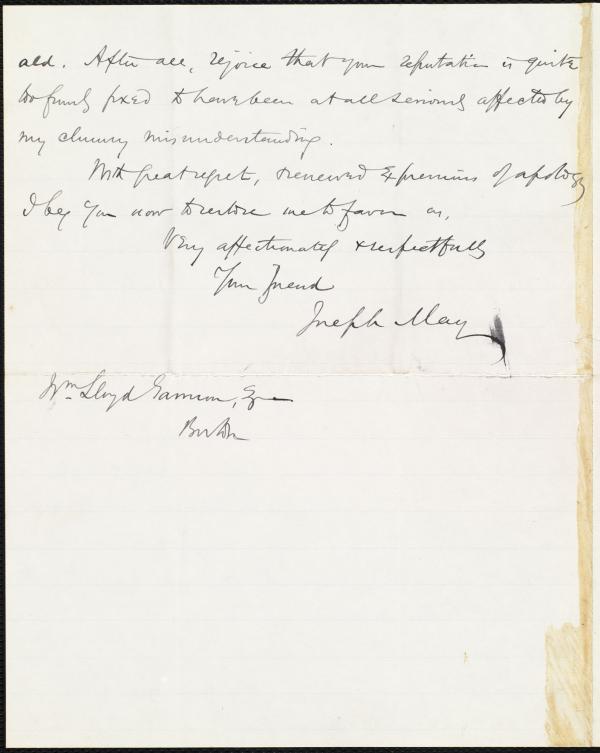 ald. After all, rejoice that your reputation is quite
too firmly fixed to have been at all seriously affected by
my clumsy misunderstanding.
With great regret, & renewed expressions of apology
I beg you now to restore me to favor as,
Very affectionately & respectfully
Your friend
Joseph May
Wm. Lloyd Garrison, Esq
Boston